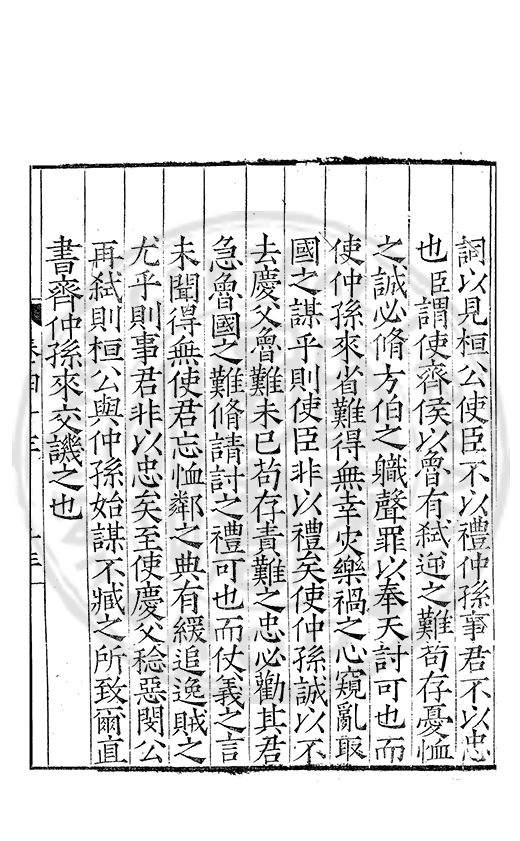 詞以見桓公使臣不以禮仲孫事君不以忠
也臣謂使齊侯以魯有弑逆之難苟存憂恤
之誠必脩方伯之職聲罪以奉天討可也而
使仲孫來省難得無幸災樂禍之心窺亂取
國之謀乎則使臣非以禮矣使仲孫誠以不
去慶父魯難未已苟存責難之忠必勸其君
急魯國之難脩請討之禮可也而仗義之言
未聞得無使君忘恤鄰之典有緩追逸賊之
尤乎則事君非以忠矣至使慶父稔惡閔公
再弑則桓公與仲孫始謀不臧之所致爾直
書齊仲孫來交譏之也